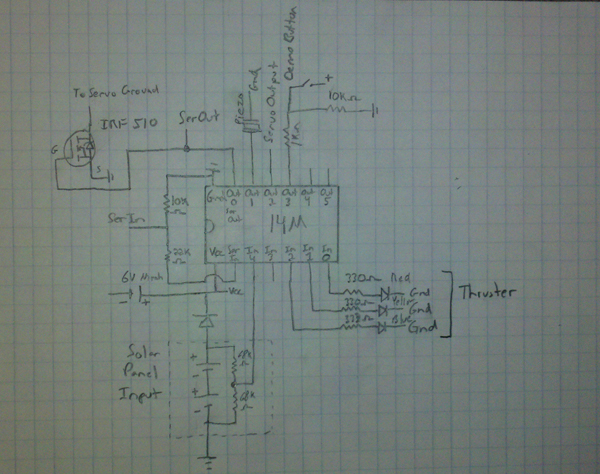 To Servo Ground
IRF 510
G
S
Ser Out
Piezo
Gnd
Servo Output
Demo Button
+
10KΩ
1KΩ
Gnd
Out
0
Out
1
Out
2
Out
3
Out
4
Out
5
Ser
Out
14M
10K
Ω
Ser In
22K
Ω
Vcc
Ser
In
In
4
In
3
In
2
In
1
In
0
6V Nimh
- +
Vcc
330Ω Red
Gnd
330Ω
Gnd
330Ω Blue
Gnd
Thruster
Solar
Panel
Input
+
-
+
-
68K
Ω
68K
Ω